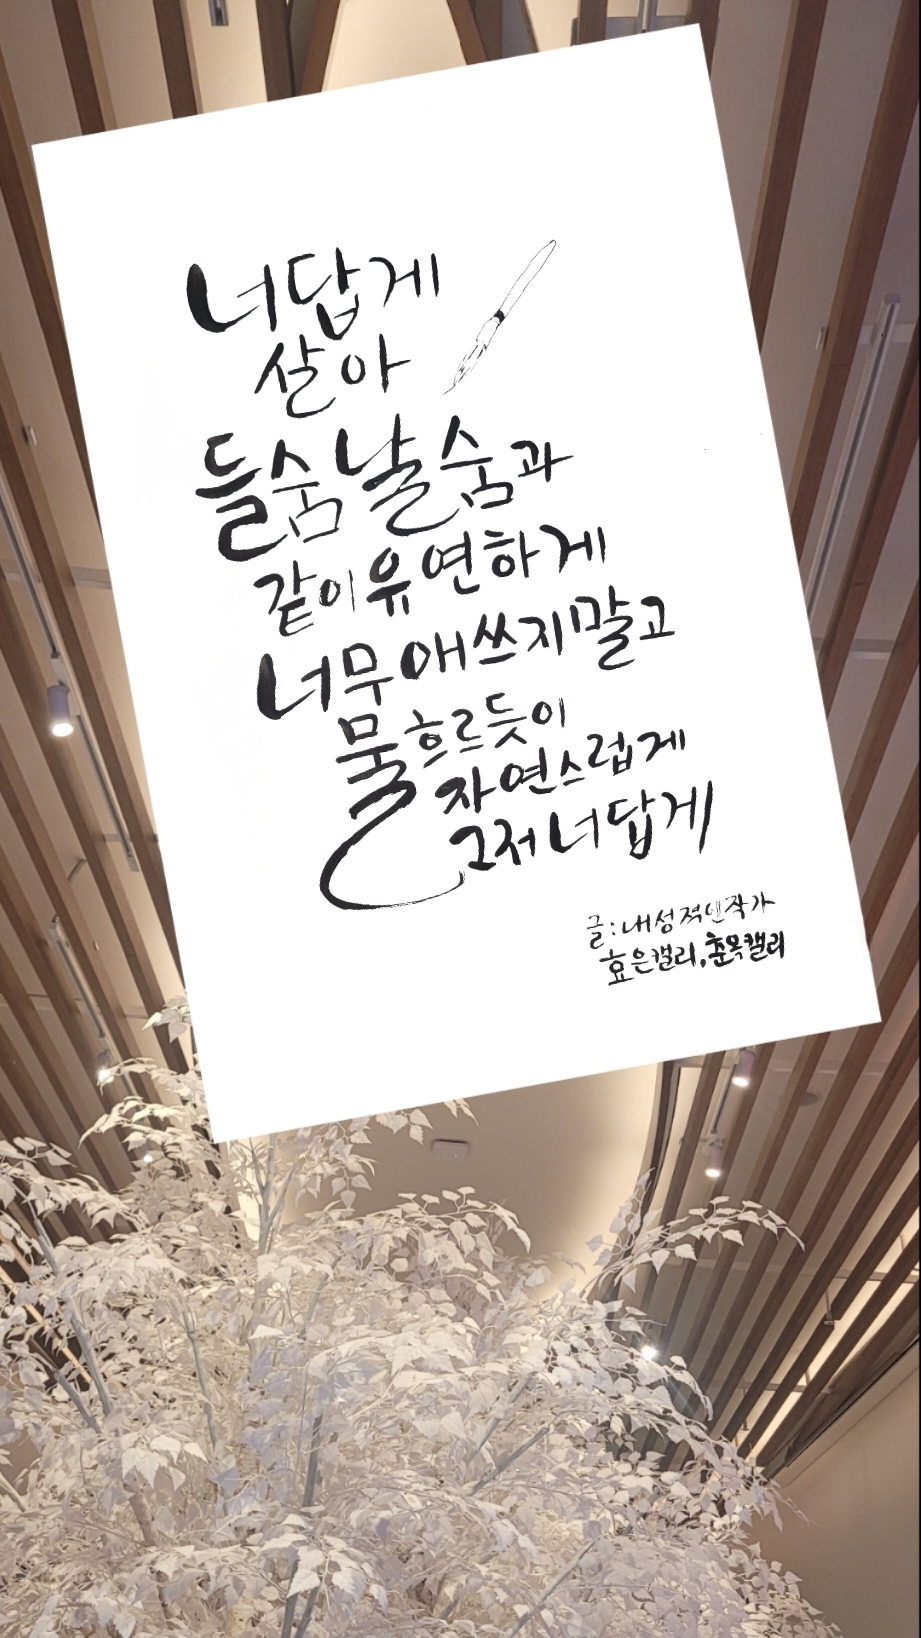 너답게
살아
들숨날숨과
같이유연하게
너무애쓰지말고
물흐르듯이
자연스럽게
그저너답게
글:내성적인작가
효은캘리,춘옥캘리